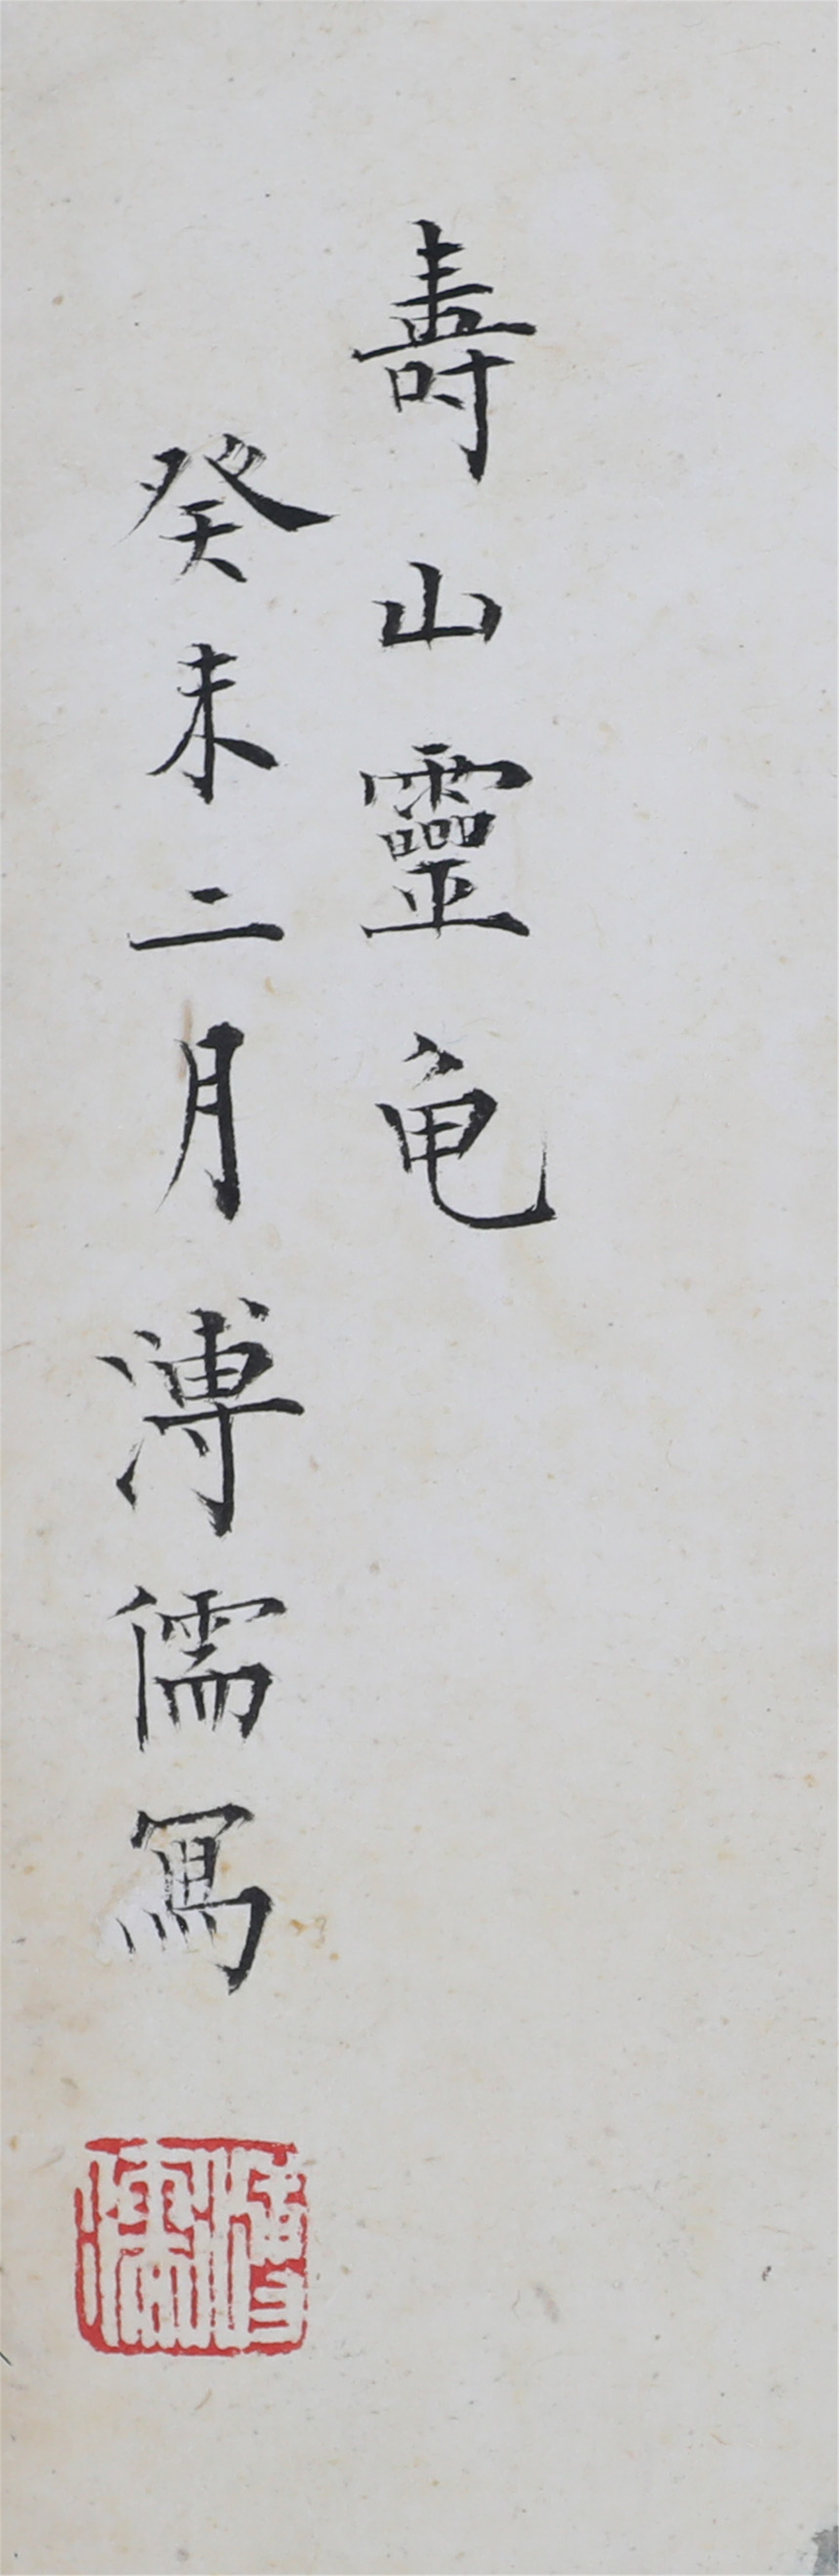 壽山靈龟
癸未二月溥儒寫
溥儒